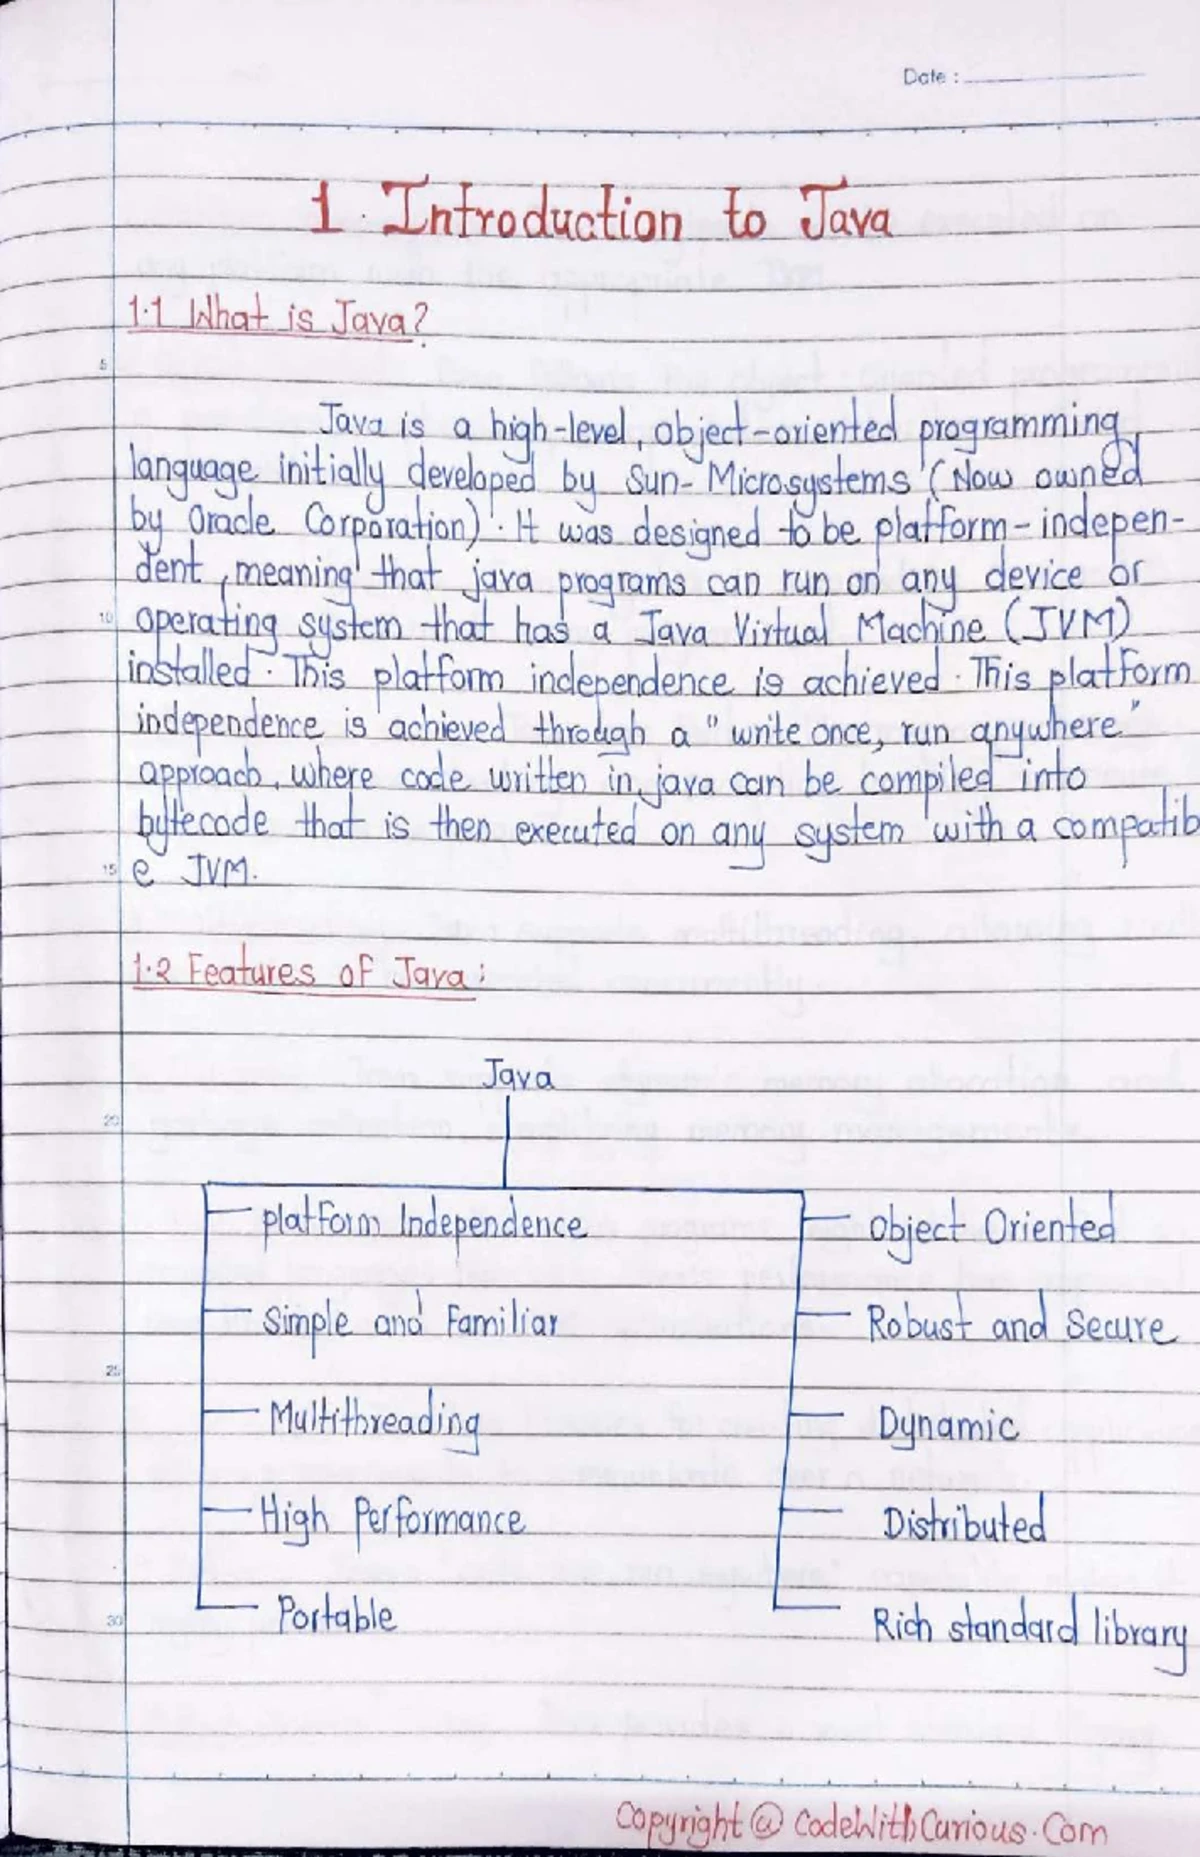 Date :
1. Introduction to Java
1.1 What is Java?
5
Java is a high-level, object-oriented programming
language initially developed by Sun-Microsystems (Now owned
by Oracle Corporation). It was designed to be platform-indepen-
dent, meaning that java programs can run on any device or
10 operating system that has a Java Virtual Machine (JVM)
installed. This platform independence is achieved. This platform
independence is achieved through a "write once, run anywhere"
approach, where code written in java can be compiled into
bytecode that is then executed on any system with a compatib
15 e JVM.
1.2 Features of Java:
Java
20
platform Independence Object Oriented
Simple and Familiar Robust and Secure
25
Multithreading Dynamic
High Performance Distributed
30 Portable Rich standard library
Copyright @ CodeWithCurious.Com